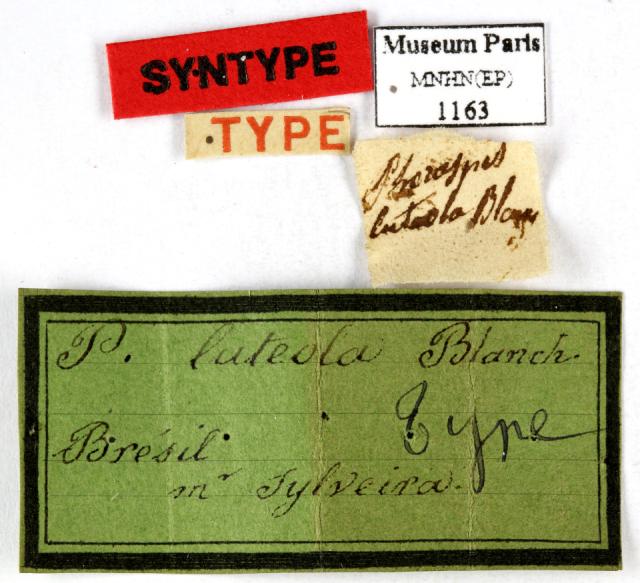 SYNTYPE
Museum Paris
MNHN(EP)
1163
TYPE
luteola Blanch
P. luteola Blanch.
Type
Brésil
mr Sylveira.